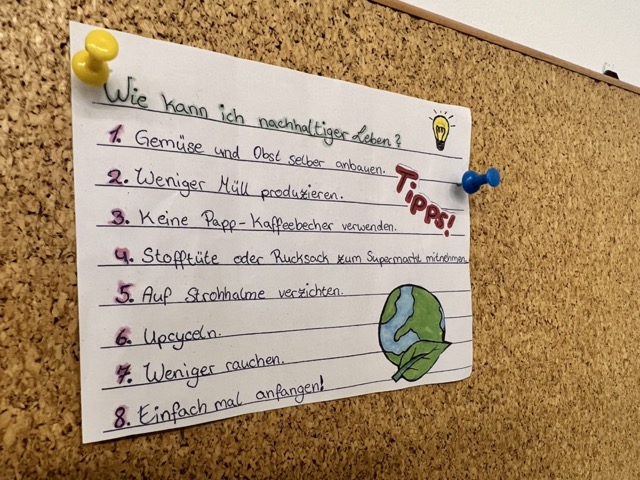 Wie kann ich nachhaltiger Leben?
1. Gemüse und Obst selber anbauen.
2. Weniger Müll produzieren.
Tipps!
3. Keine Papp-Kaffeebecher verwenden.
4. Stofftüte oder Rucksack zum Supermarkt mitnehmen.
5. Auf Strohhalme verzichten.
6. Upcyceln.
7. Weniger rauchen.
8. Einfach mal anfangen!